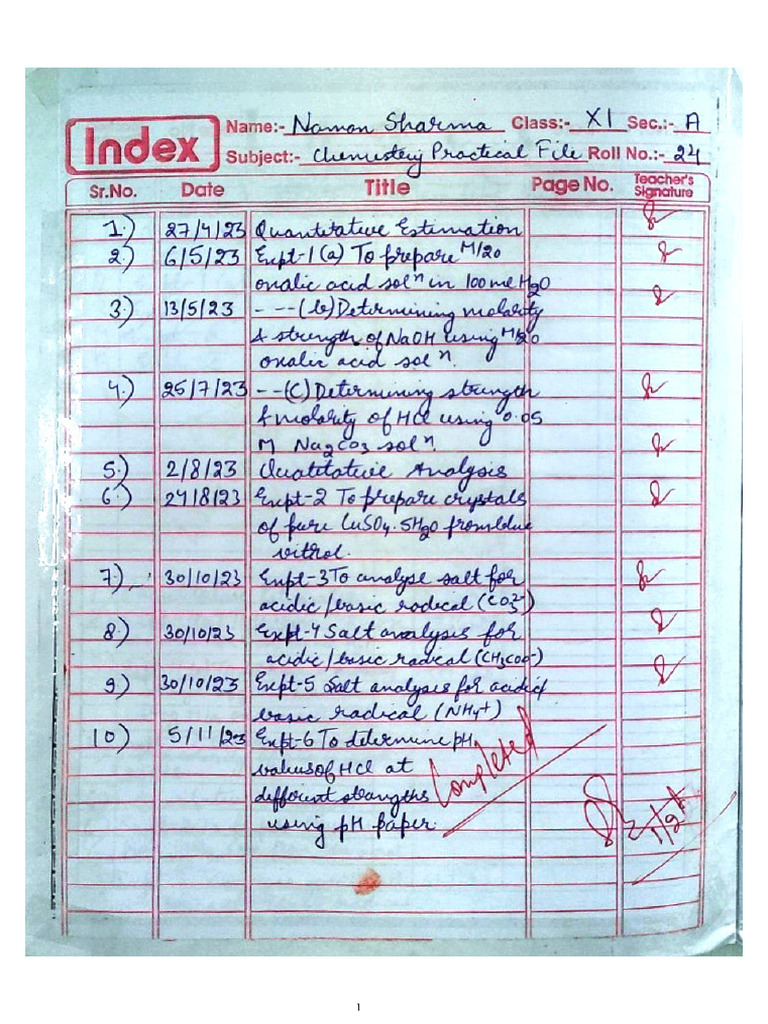 Index
Name:- Naman Sharma Class:- XI Sec.:- A
Subject:- Chemistry Practical File Roll No.:- 24
Sr.No. Date Title Page No. Teacher's Signature
1.) 27/4/23 Quantitative Estimation
2.) 6/5/23 Expt-1(a) To prepare M/20
oxalic acid solⁿ in 100ml H₂O
3.) 13/5/23 - --(b)Determining molarity
& strength of NaOH using M/20
oxalic acid solⁿ.
4.) 25/7/23 --(C)Determining strength
& molarity of HCl using 0.05
M Na₂CO₃ solⁿ.
5.) 2/8/23 Qualitative Analysis
6.) 24/8/23 Expt-2 To prepare crystals
of pure CuSO₄.5H₂O from blue
vitrol.
7.) 30/10/23 Expt-3 To analyse salt for
acidic/basic radical (CO₃²⁻)
8.) 30/10/23 Expt-4 Salt analysis for
acidic/basic radical (CH₃COO⁻)
9.) 30/10/23 Expt-5 Salt analyses for acidic/
basic radical (NH₄⁺)
10) 5/11/23 Expt-6 To determine pH
values of HCl at
different strengths
using pH paper.
Completed
1